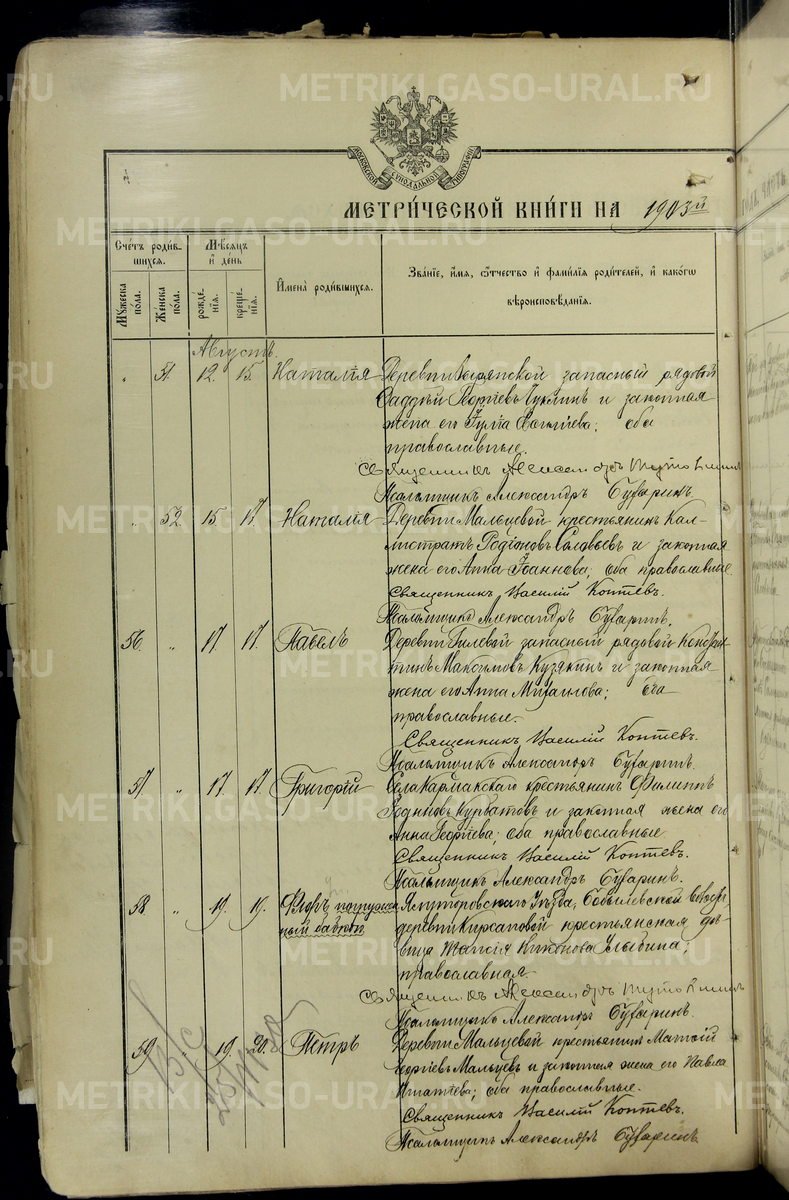 METRIKI.GASO-URAL.RU
МОСКОВСКОЙ СѴНОДАЛЬНОЙ ТИПОГРАФІИ
МЕТРИЧЕСКОЙ КНИГИ НА 1903й
Счетъ родив-
шихся.
Мѣсяцъ
и день
Имена родившихся.
Званіе, имя, отчество и фамилія родителей, и какого
вѣроисповѣданія.
Мужеска пола.
Женска пола.
рожде-
нія.
креще-
нія.
Августъ.
„ 51 12. 15. Наталія Деревни запасный рядовой
Георгіевъ и законная
жена его Васильева; оба
православные.
Священникъ Александръ
Псаломщикъ Александръ Бухаринъ.
„ 52. 15 17. Наталія Деревни Мальцевой крестьянинъ Кал-
листратъ Родіоновъ Соловьевъ и законная
жена его Анна Іоаннова; оба православные.
Священникъ Василій Коптевъ.
Псаломщикъ Александръ Бухаринъ.
56. „ 17 17. Павелъ Деревни Гилевой запасный рядовой
Максимовъ Кузякинъ и законная
жена его Анна Михаилова; оба
православные.
Священникъ Василій Коптевъ.
Псаломщикъ Александръ Бухаринъ.
57 „ 17 17. Григорій Села Кармакскаго крестьянин Филиппъ
Курбатовъ и законная жена его
Анна Георгіева; оба православные.
Священникъ Василій Коптевъ.
Псаломщикъ Александръ Бухаринъ.
58 „ 19. 19. Ялуторовскаго Уѣзда,
деревни Кирсановой крестьянская дѣ-
вица Таисія
православная.
Священникъ Александръ
Псаломщикъ Александръ Бухаринъ.
59 „ 19. 20. Петръ Деревни Мальцевой крестьянинъ Матѳій
Георгіевъ Мальцевъ и законная жена его Павла
Игнатіева; оба православные.
Священникъ Василій Коптевъ.
Псаломщикъ Александръ Бухаринъ